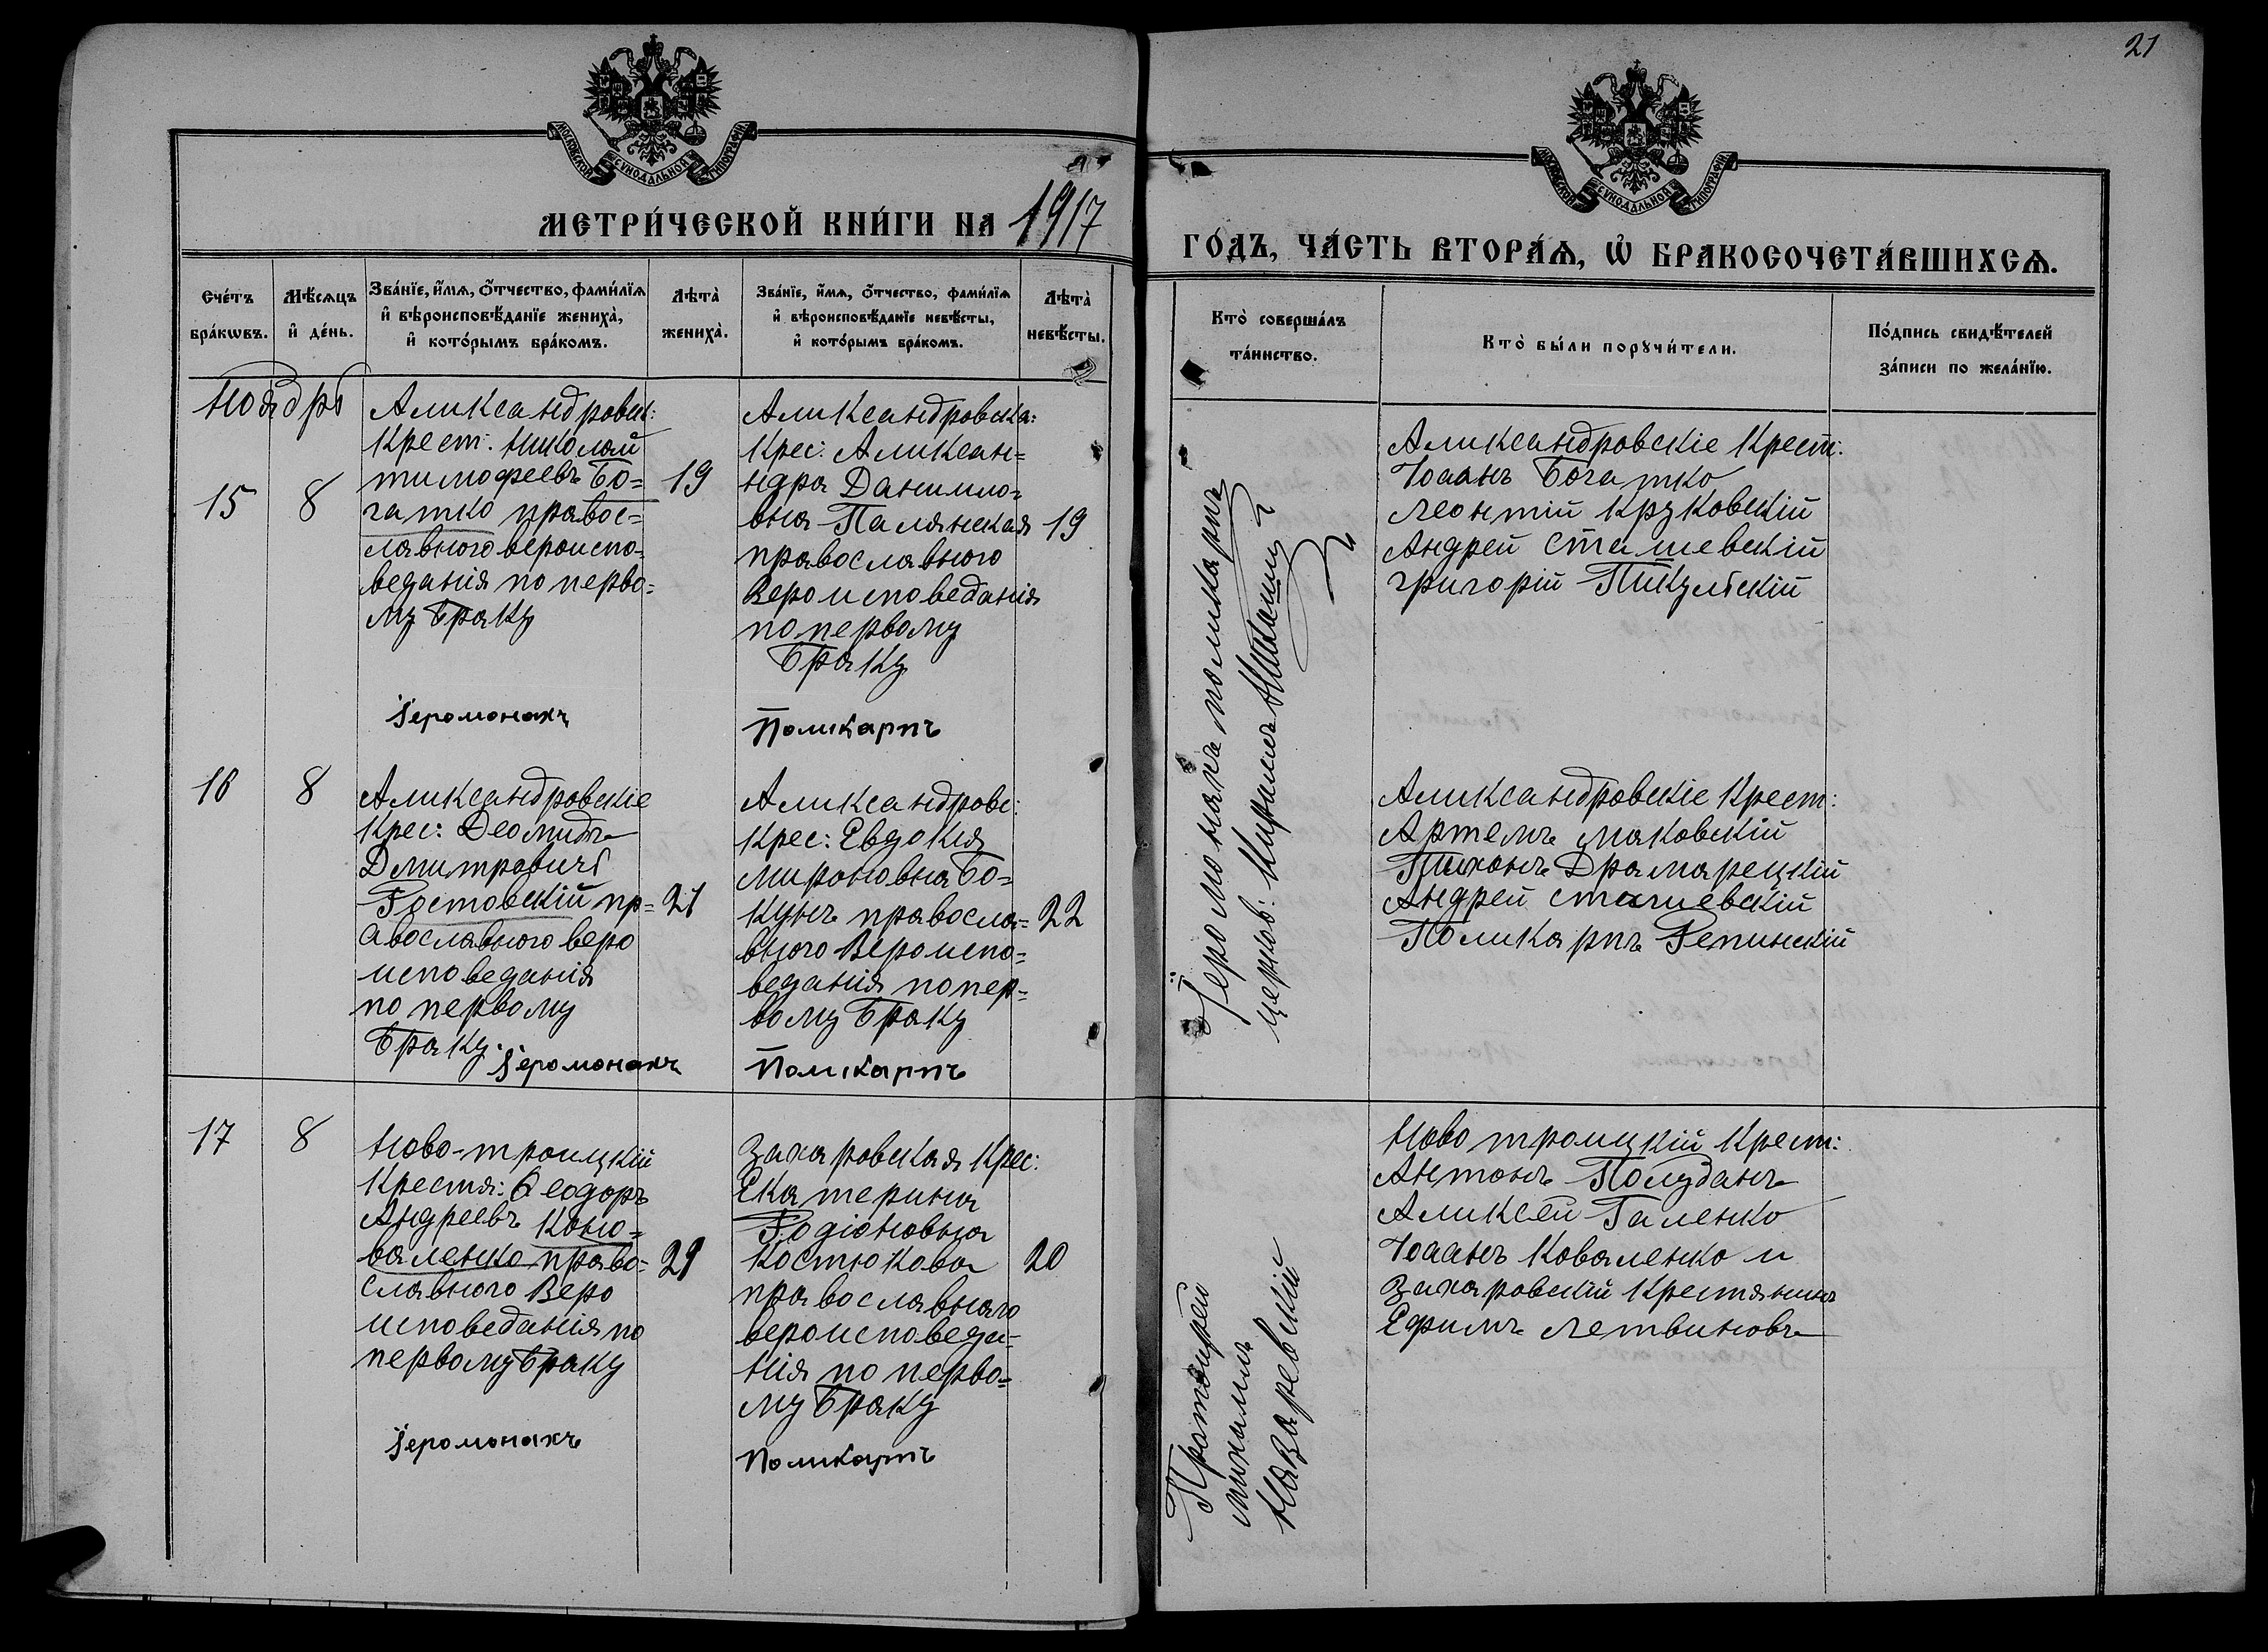 21
МОСКОВСКОЙ СѴНОДАЛЬНОЙ ТИПОГРАФІИ
МОСКОВСКОЙ СѴНОДАЛЬНОЙ ТИПОГРАФІИ
МЕТРИ́ЧЕСКОЙ КНИ́ГИ НА 1917
ГО́ДЪ, ЧА́СТЬ ВТОРА́Ѧ, Ѽ БРАКОСОЧЕТА́ВШИХСѦ.
Сче́тъ
бра́кѡвъ.
Мѣ́сѧцъ
и҆ де́нь.
Зва́нїе, и҆́мѧ, ѻ҆́тчество, фами́лїѧ
и҆ вѣроисповѣ́данїе жениха̀,
и҆ кото́рымъ бра́комъ.
Лѣта̀
жениха̀.
Зва́нїе, и҆́мѧ, ѻ҆́тчество, фами́лїѧ
и҆ вѣроисповѣ́данїе невѣ́сты,
и҆ кото́рымъ бра́комъ.
Лѣта̀
невѣ́сты.
Кто̀ соверша́лъ
та́инство.
Кто̀ бы́ли порꙋчи́тели.
По́дпись свидѣ́телей
за́писи по жела́нїю.
Ноядрь
15
8
Аликсандровск:
Крест: Николай
тимофеевъ Бо=
гатко правос=
лавного вероиспо-
веданія по перво=
му Браку
19
Аликсандровска:
Крес: Аликсан=
ндра Данилло-
вна Палянская
православного
Вероисповеданія
по первому
Браку
19
Іеромонахъ
Поликарпъ
Іеромонахъ поликарпъ
церков:
Аликсандровскіе Крест:
Іоаанъ Богатко
леонтій Круковскій
Андрей Сташевскій
григорій Пикульскій
16
8
Аликсандровскіе
Крес: Деомидъ
Дмитровичь
Ростовскій пр=
авославного веро
исповеданія
по первому
Браку.
21
Аликсандровс:
Крес: Евдокія
мироновна Бо=
кунъ правосла=
вного Вероиспо=
веданія по пер=
вому Браку
22
Іеромонахъ
Поликарпъ
Аликсандровскіе Крест:
Артемъ маковскій
Тихонъ Драмарецкій
Андрей сташевскій
Поликарпъ Репинскій
17
8
Ново-троицкій
Крестя: Ѳеодоръ
Андреевъ Коно=
валенко право=
славного Веро
исповеданія по
первому Браку
29
Захаровская Крес:
Екатерина
Родіоновна
Костюкова
православнаго
вероисповеда-
нія по перво=
му Браку
20
Іеромонахъ
Поликарпъ
Протоиреи
михаилъ
Назаревскій
Ново троицкій Крест:
Антонъ Полуданъ
Аликсей Галенко
Іоаанъ Коваленко и
Захаровскій Крестянинъ
Ефимъ летвиновъ